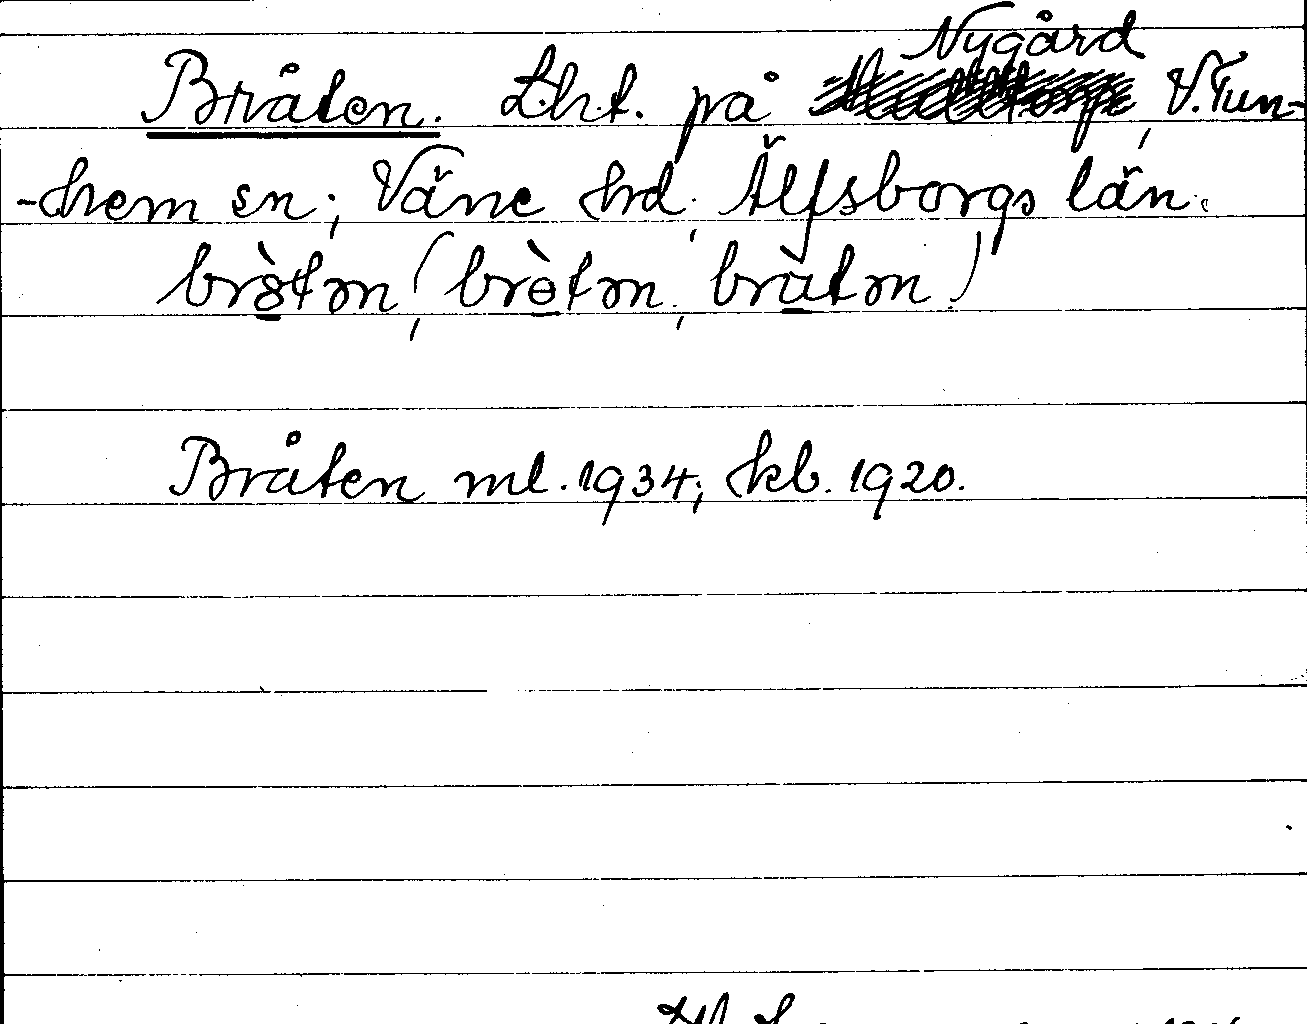 Nygård
Bråten. Lht. på V. Tun-
-hem sn; Väne hd, Älfsborgs län.
brɵ̀tən, (brɵ̀tən, bràtən)
Bråten ml. 1934; kb. 1920.